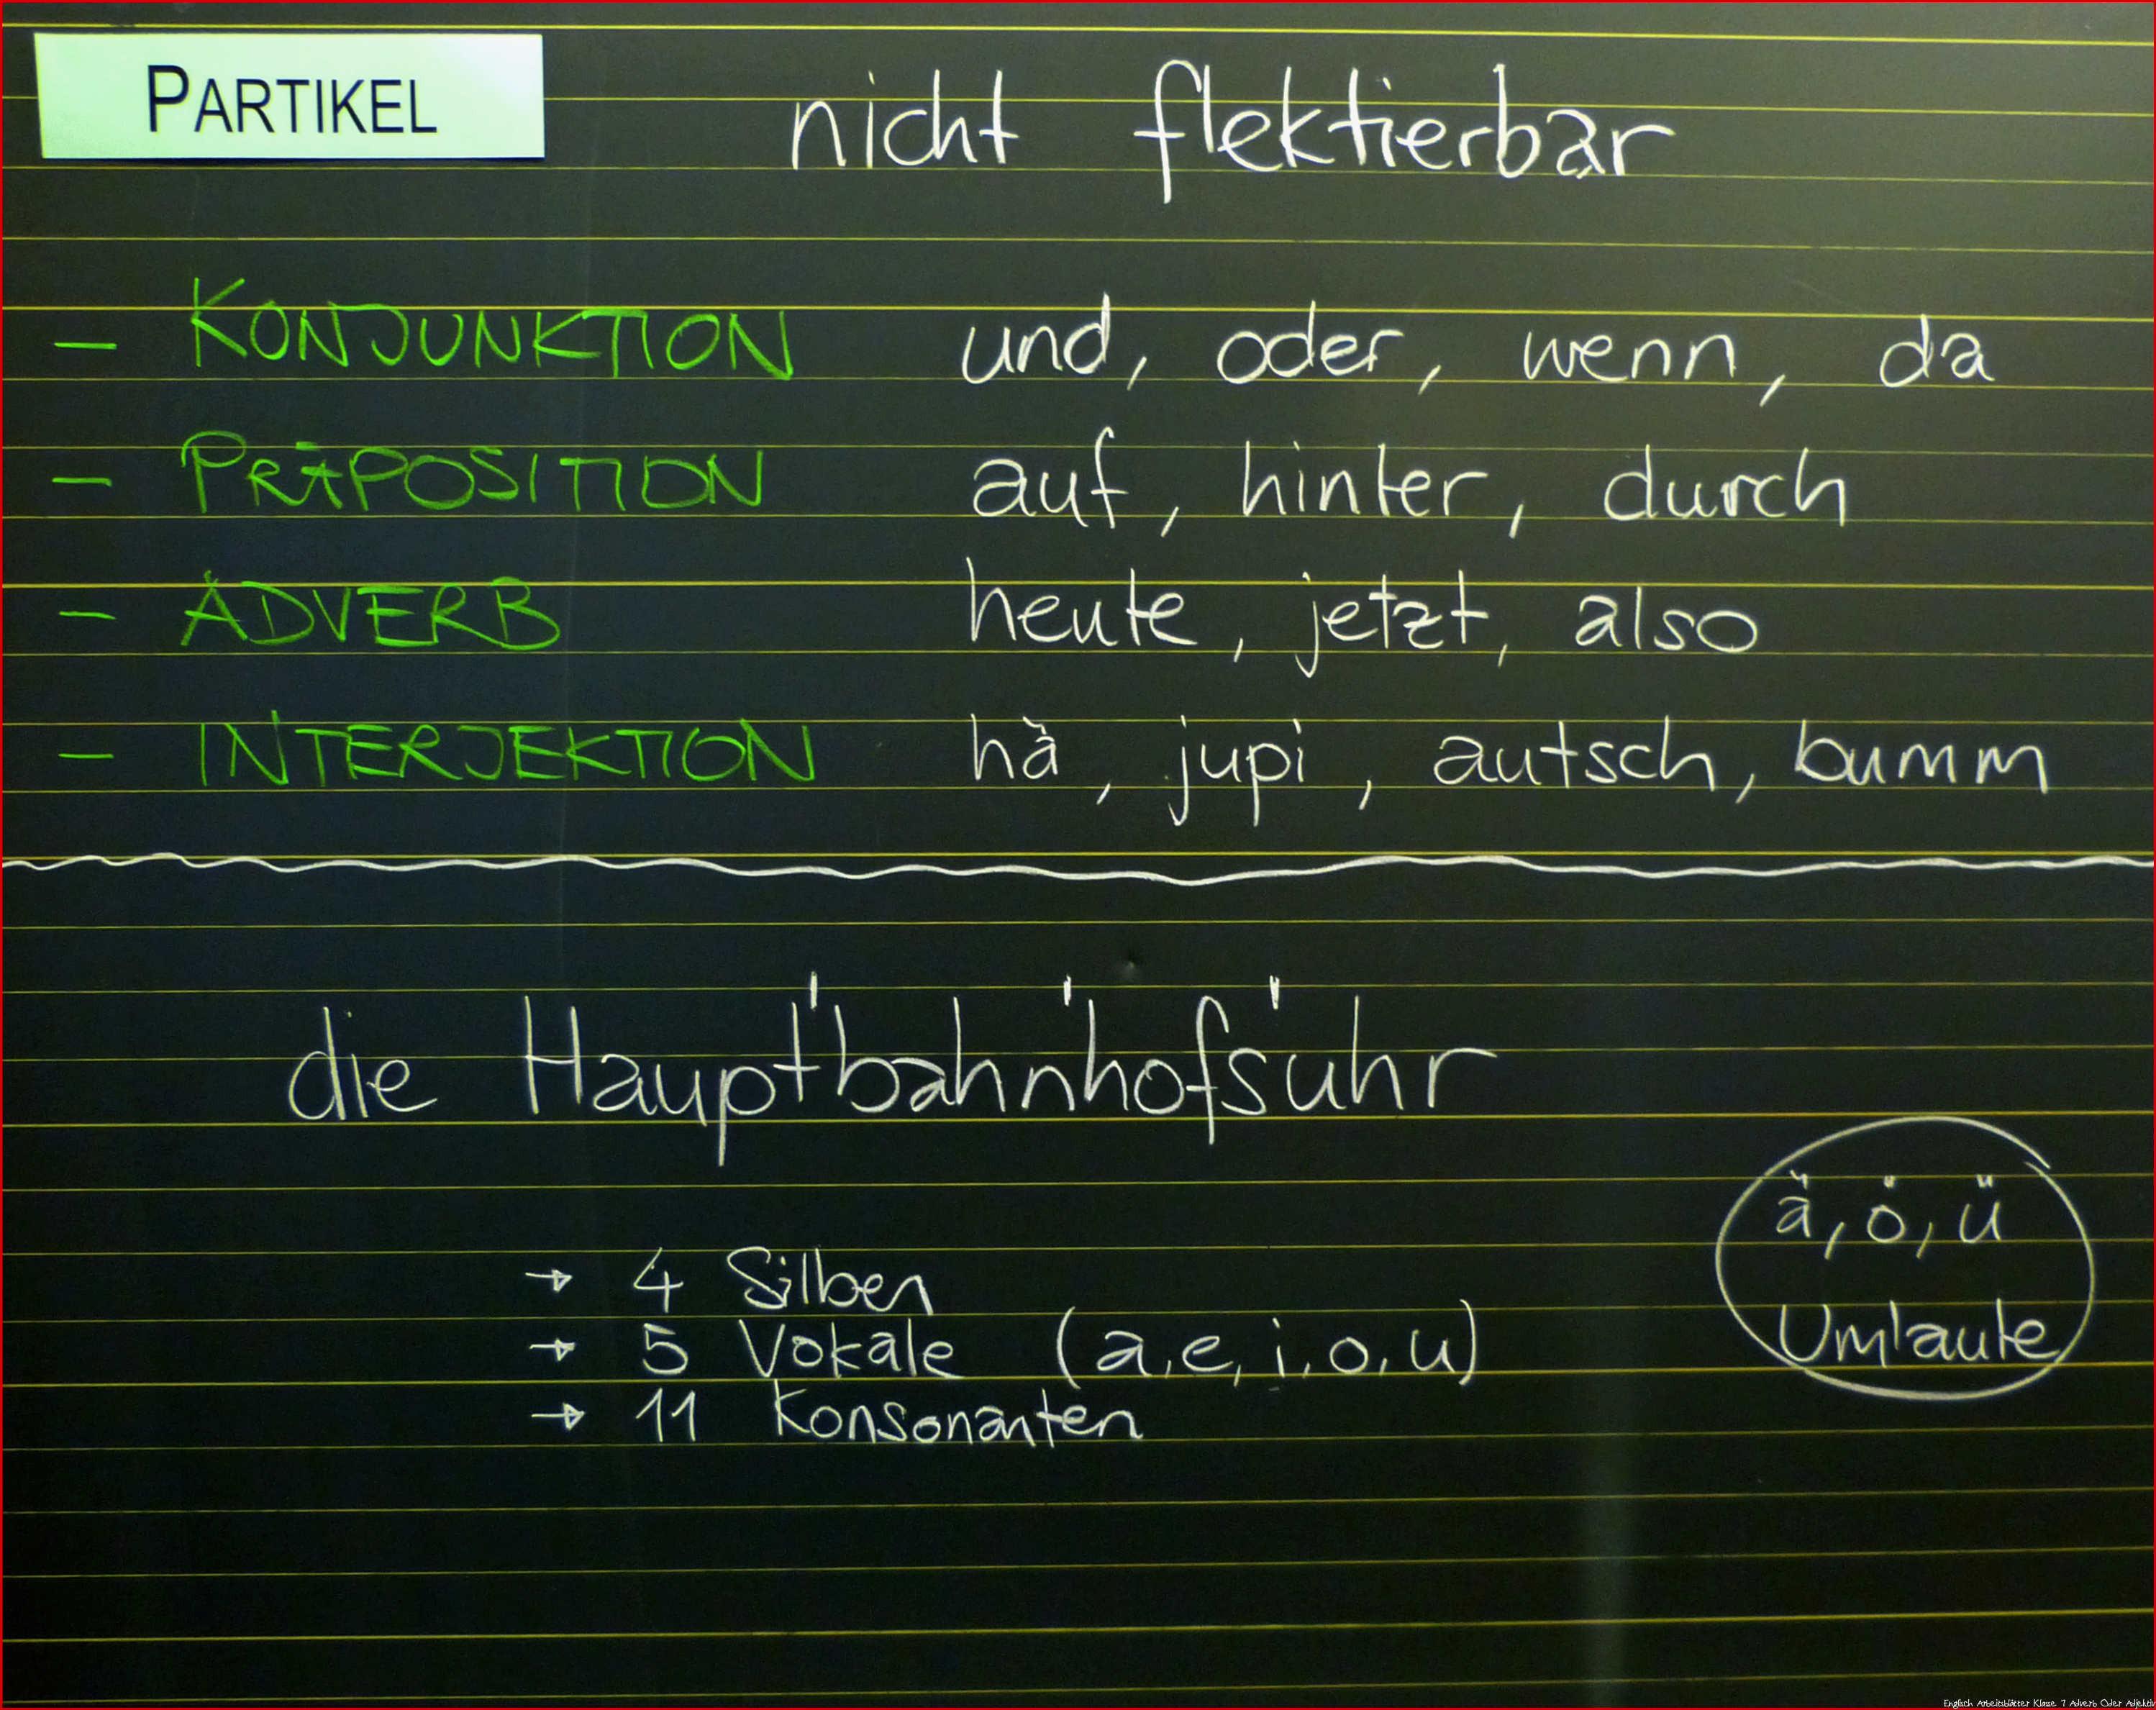 PARTIKEL nicht flektierbar
- KONJUNKTION und, oder, wenn, da
- PRÄPOSITION auf, hinter, durch
- ADVERB heute, jetzt, also
- INTERJEKTION hä, jupi, autsch, bumm
die Haupt'bahn'hofs'uhr
→ 4 Silben
→ 5 Vokale (a, e, i, o, u)
→ 11 Konsonanten
ä, ö, ü
Umlaute
Englisch Arbeitsblätter Klasse 7 Adverb Oder Adjektiv